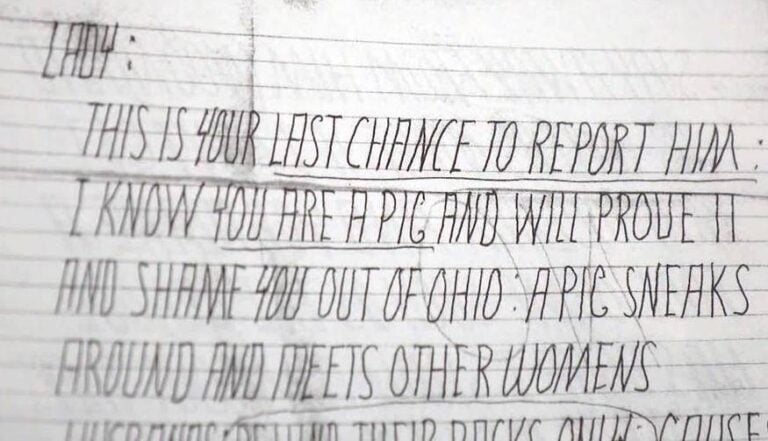 LADY:
THIS IS YOUR LAST CHANCE TO REPORT HIM:
I KNOW YOU ARE A PIG AND WILL PROVE IT
AND SHAME YOU OUT OF OHIO: A PIG SNEAKS
AROUND AND MEETS OTHER WOMENS
HUSBANDS: BEHIND THEIR BACKS ONLY: CAUSE